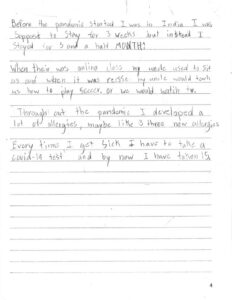 Before the pandemic started I was in India I was
Suppost to Stay for 3 weeks but instead I
Stayed for 5 and a half MONTH!
When their was online class my uncle used to sit
us and when it was recese my uncle would teach
us how to play Soccer or we would watch tv.
Through out the pandemic I developed a
lot of allergies, maybe like 3 three new allergies
Every time I get Sick I have to take a
covid-19 test and by now I have taken 15
4